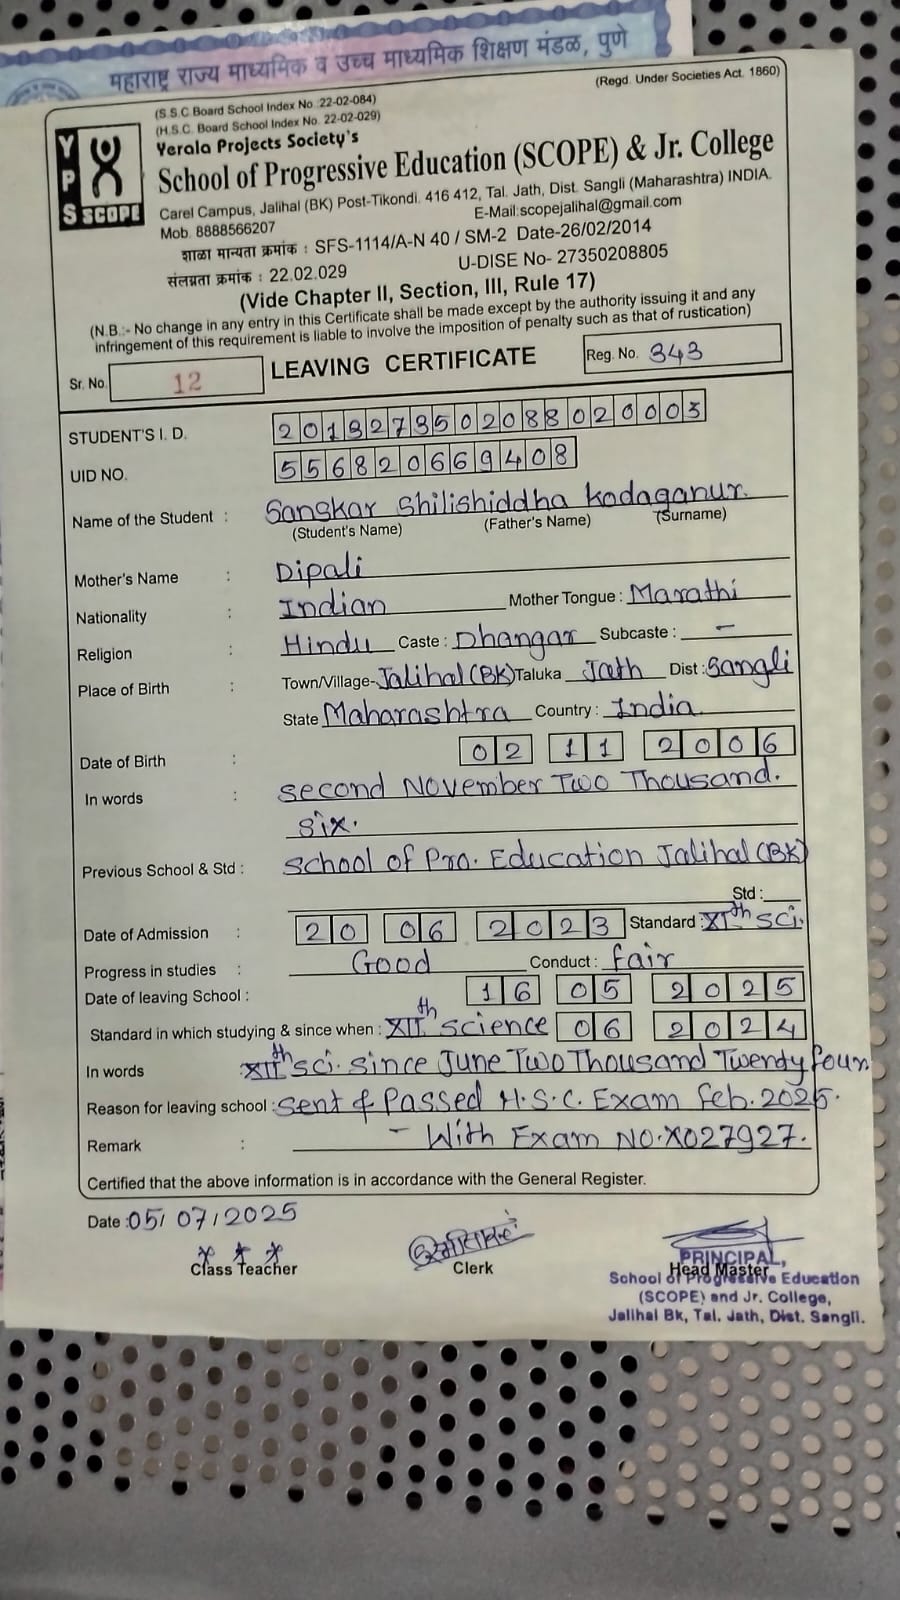 महाराष्ट्र राज्य माध्यमिक व उच्च माध्यमिक शिक्षण मंडळ, पुणे
(Regd. Under Societies Act. 1860)
(S.S.C Board School Index No. 22-02-084)
(H.S.C. Board School Index No. 22-02-029)
Yerala Projects Society's
YPS SCOPE
School of Progressive Education (SCOPE) & Jr. College
Carel Campus, Jalihal (BK) Post-Tikondi. 416 412, Tal. Jath, Dist. Sangli (Maharashtra) INDIA.
Mob. 8888566207 E-Mail:scopejalihal@gmail.com
शाळा मान्यता क्रमांक : SFS-1114/A-N 40 / SM-2 Date-26/02/2014
संलग्नता क्रमांक : 22.02.029 U-DISE No- 27350208805
(Vide Chapter II, Section, III, Rule 17)
(N.B.:- No change in any entry in this Certificate shall be made except by the authority issuing it and any
infringement of this requirement is liable to involve the imposition of penalty such as that of rustication)
Sr. No. 12 LEAVING CERTIFICATE Reg. No. 343
STUDENT'S I. D. 2013273502088020003
UID NO. 556820669408
Name of the Student : Sanskar Shilishiddha Kadaganur.
(Student's Name) (Father's Name) (Surname)
Mother's Name : Dipali
Nationality : Indian Mother Tongue : Marathi
Religion : Hindu Caste : Dhangar Subcaste : -
Place of Birth : Town/Village-Jalihal(BK) Taluka Jath Dist : Sangli
State Maharashtra Country : India
Date of Birth : 02 11 2006
In words : second November Two Thousand.
six.
Previous School & Std : School of Pro. Education Jalihal (BK)
Std :
Date of Admission : 20 06 2023 Standard : XIth sci.
Progress in studies : Good Conduct : fair
Date of leaving School : 16 05 2025
Standard in which studying & since when : XIIth science 06 2024
In words : XIIth sci. since June Two Thousand Twenty four
Reason for leaving school : Sent & Passed H.S.C. Exam Feb. 2025.
Remark : - With Exam NO. X027927.
Certified that the above information is in accordance with the General Register.
Date : 05/07/2025
Class Teacher Clerk Head Master
PRINCIPAL,
School of Progressive Education
(SCOPE) and Jr. College,
Jalihal Bk, Tal. Jath, Dist. Sangli.